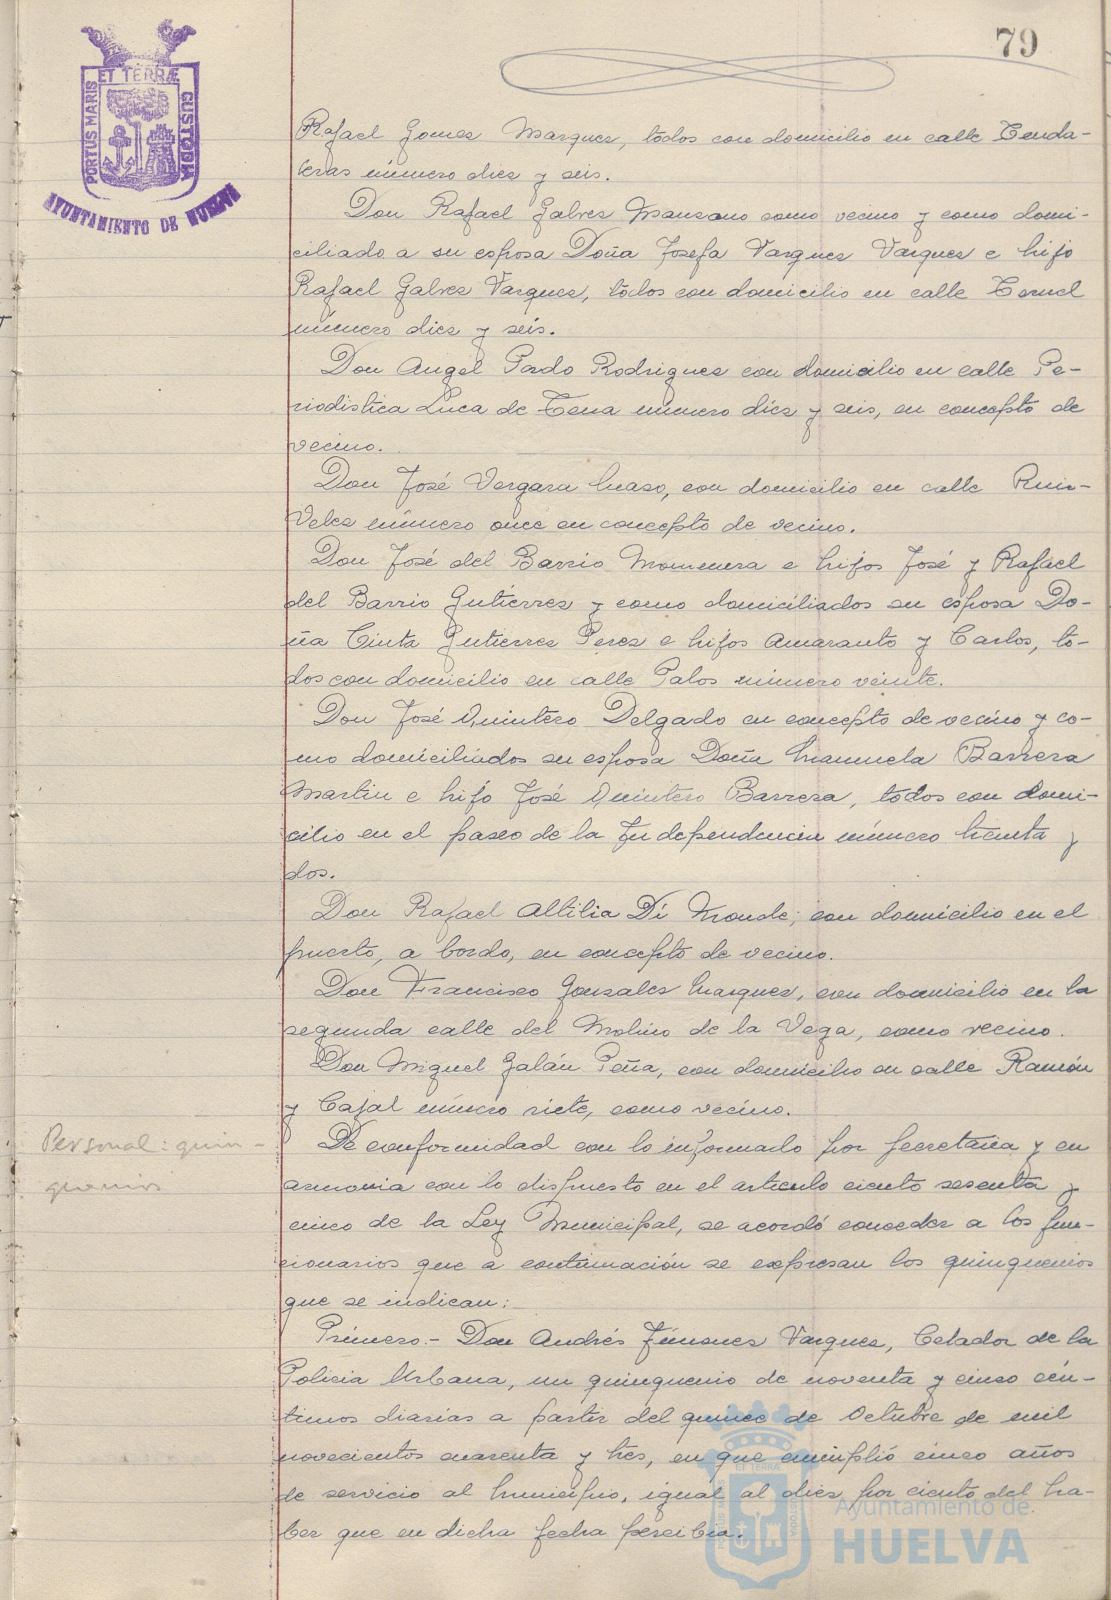 79
PORTUS MARIS ET TERRÆ CUSTODIA
AYUNTAMIENTO DE HUELVA
Rafael Gomez Marquez, todos con domicilio en calle Tenda-
leras número diez y seis.
Don Rafael Galvez Manzano como vecino y como domi-
ciliado a su esposa Doña Josefa Vazquez Vazquez e hijo
Rafael Galvez Vazquez, todos con domicilio en calle Teruel
número diez y seis.
Don Angel Pardo Rodriguez con domicilio en calle Pe-
riodistica Luca de Tena número diez y seis, en concepto de
vecino.
Don José Vergara, con domicilio en calle Ruiz-
Velez número once en concepto de vecino.
Don José del Barrio e hijos José y Rafael
del Barrio Gutierrez y como domiciliados su esposa Do-
ña Cinta Gutierrez Perez e hijos Amaranto y Carlos, to-
dos con domicilio en calle Palos número veinte.
Don José Quintero Delgado en concepto de vecino y co-
mo domiciliados su esposa Doña Manuela Barrera
Martin e hijo José Quintero Barrera, todos con domi-
cilio en el paseo de la Independencia número treinta y
dos.
Don Rafael Attilia Di, con domicilio en el
puerto, a bordo, en concepto de vecino.
Don Francisco Gonzalez Marquez, con domicilio en la
segunda calle del Molino de la Vega, como vecino.
Don Miguel Galán Peña, con domicilio en calle Ramón
y Cajal número siete, como vecino.
Personal: quin-
quenios
De conformidad con lo informado por Secretaria y en
armonia con lo dispuesto en el articulo ciento sesenta y
cinco de la Ley Municipal, se acordó conceder a los fun-
cionarios que a continuación se expresan los quinquenios
que se indican:
Primero.- Don Andrés Jimenez Vazquez, Celador de la
Policia Urbana, un quinquenio de noventa y cinco cén-
timos diarias a partir del quince de Octubre de mil
novecientos cuarenta y tres, en que cumplió cinco años
de servicio al Municipio, igual al diez por ciento del ha-
ber que en dicha fecha percibia.
Ayuntamiento de
HUELVA